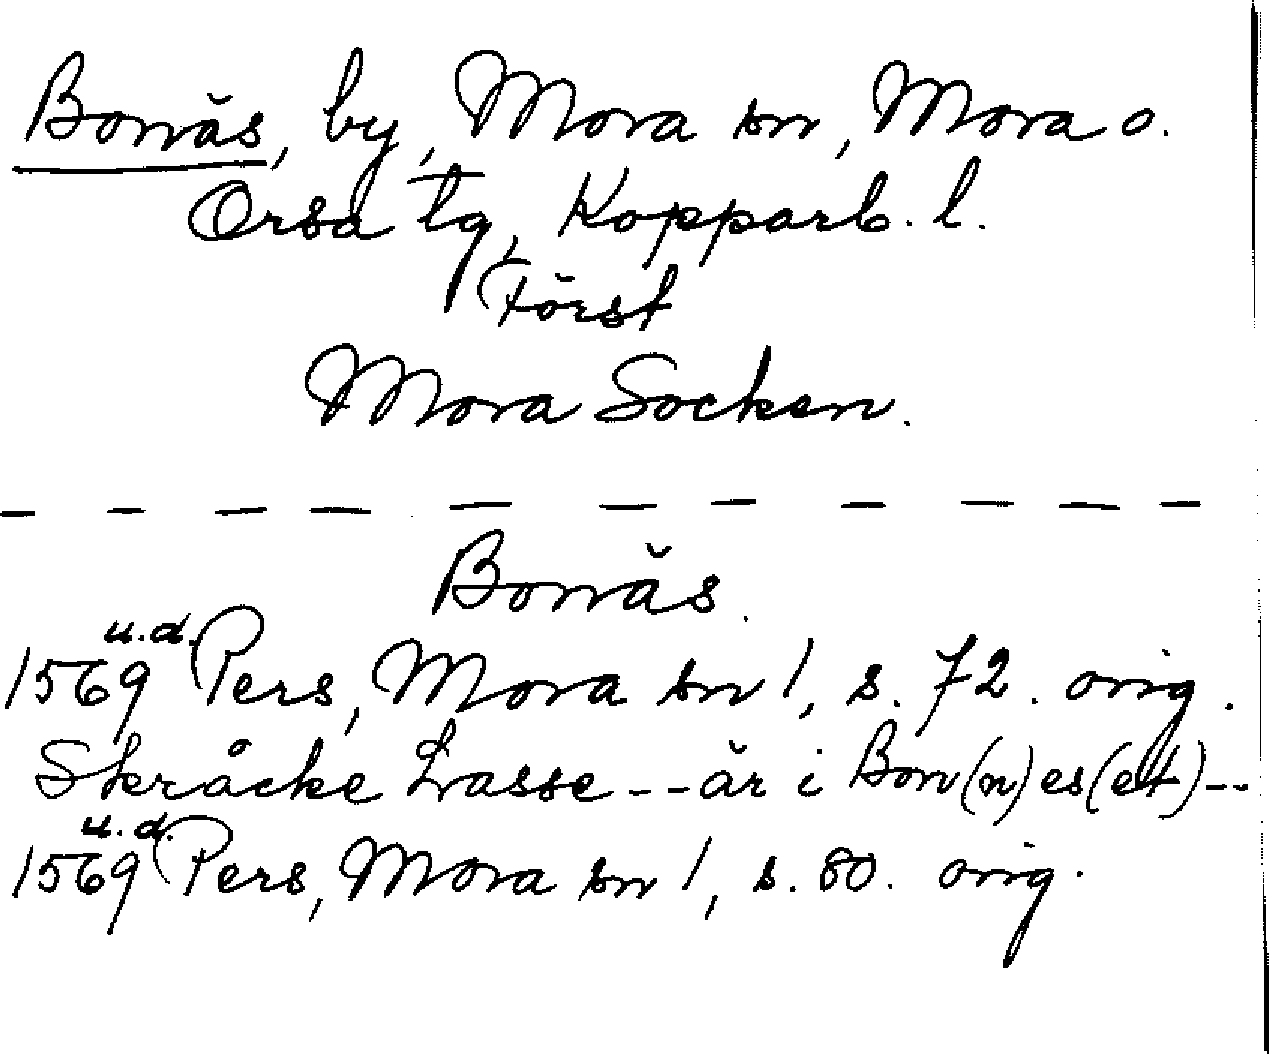 Bonäs, by, Mora sn, Mora o.
Orsa tg, Kopparb. l.
Först
Mora Socken.
Bonäs.
1569 u.d. Pers, Mora sn 1, s. 72. orig.
Skråcke Lasse -- är i Bon(n)es(et) --
1569 u.d. Pers, Mora sn 1, s. 80. orig.